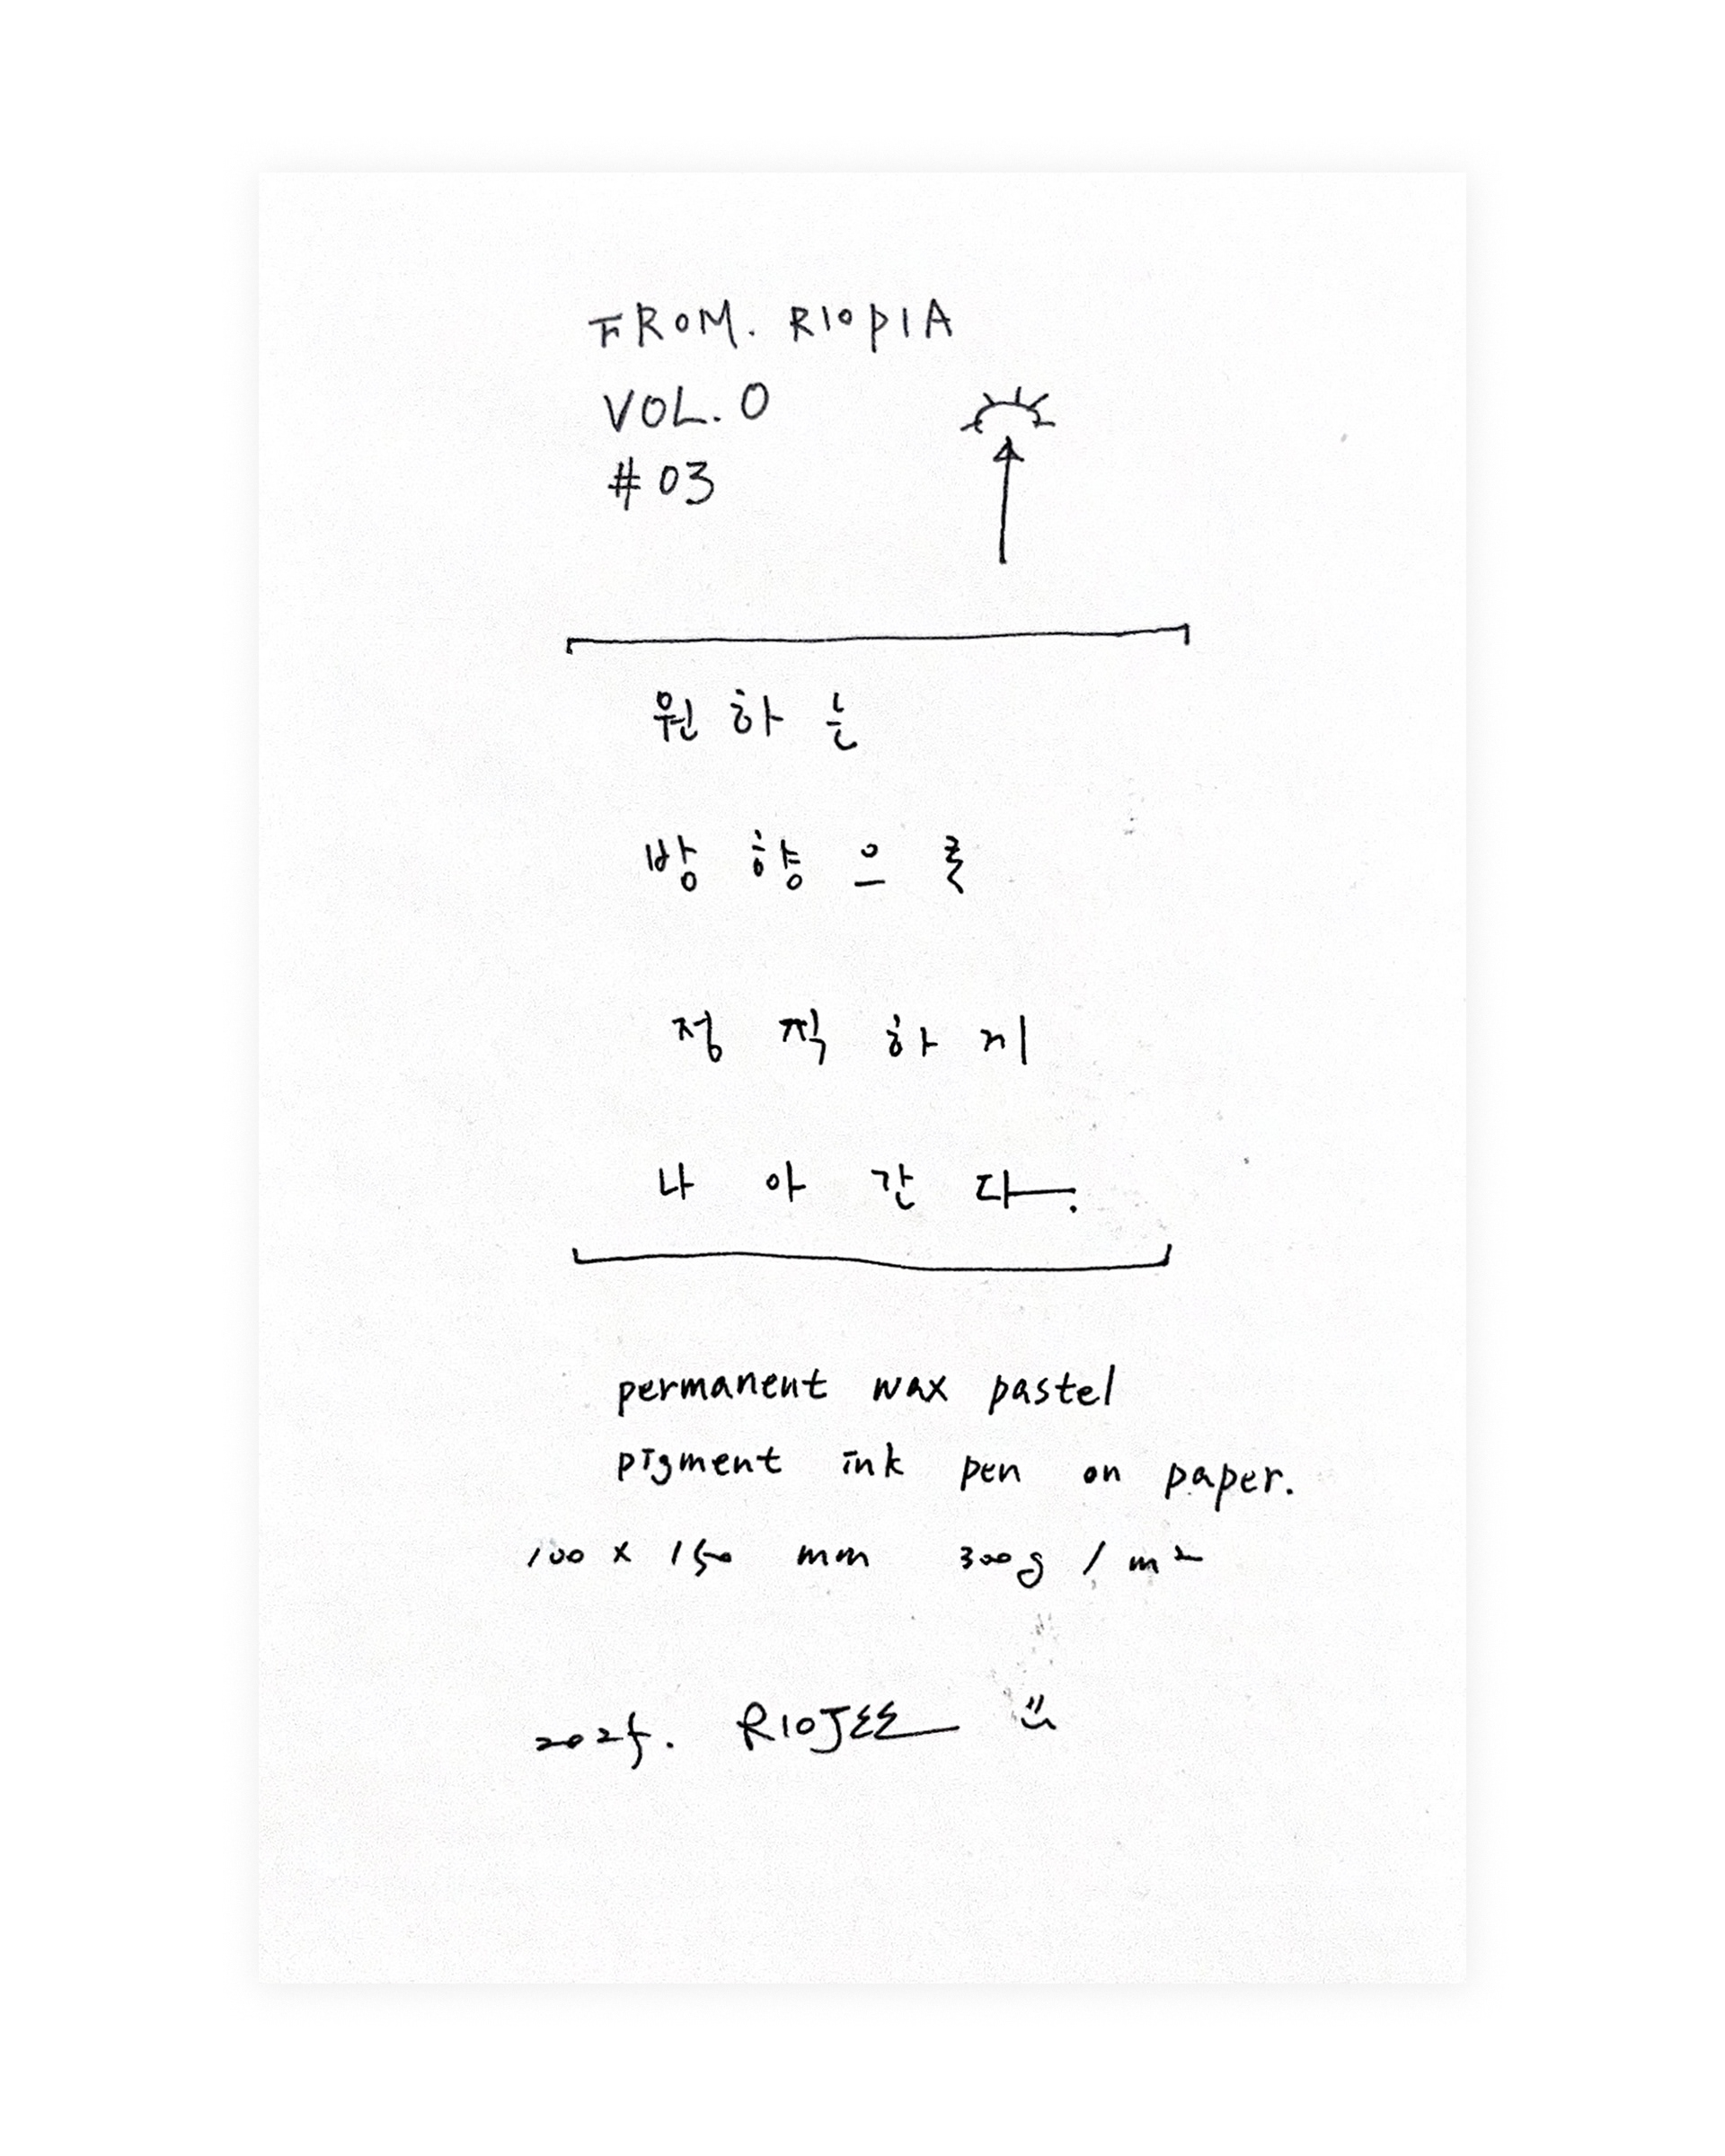 FROM. RIOPIA
VOL. 0
#03
원하는
방향으로
정직하게
나아간다.
permanent wax pastel
pigment ink pen on paper.
100 x 150 mm 300g / m²
2025. RIOJEE